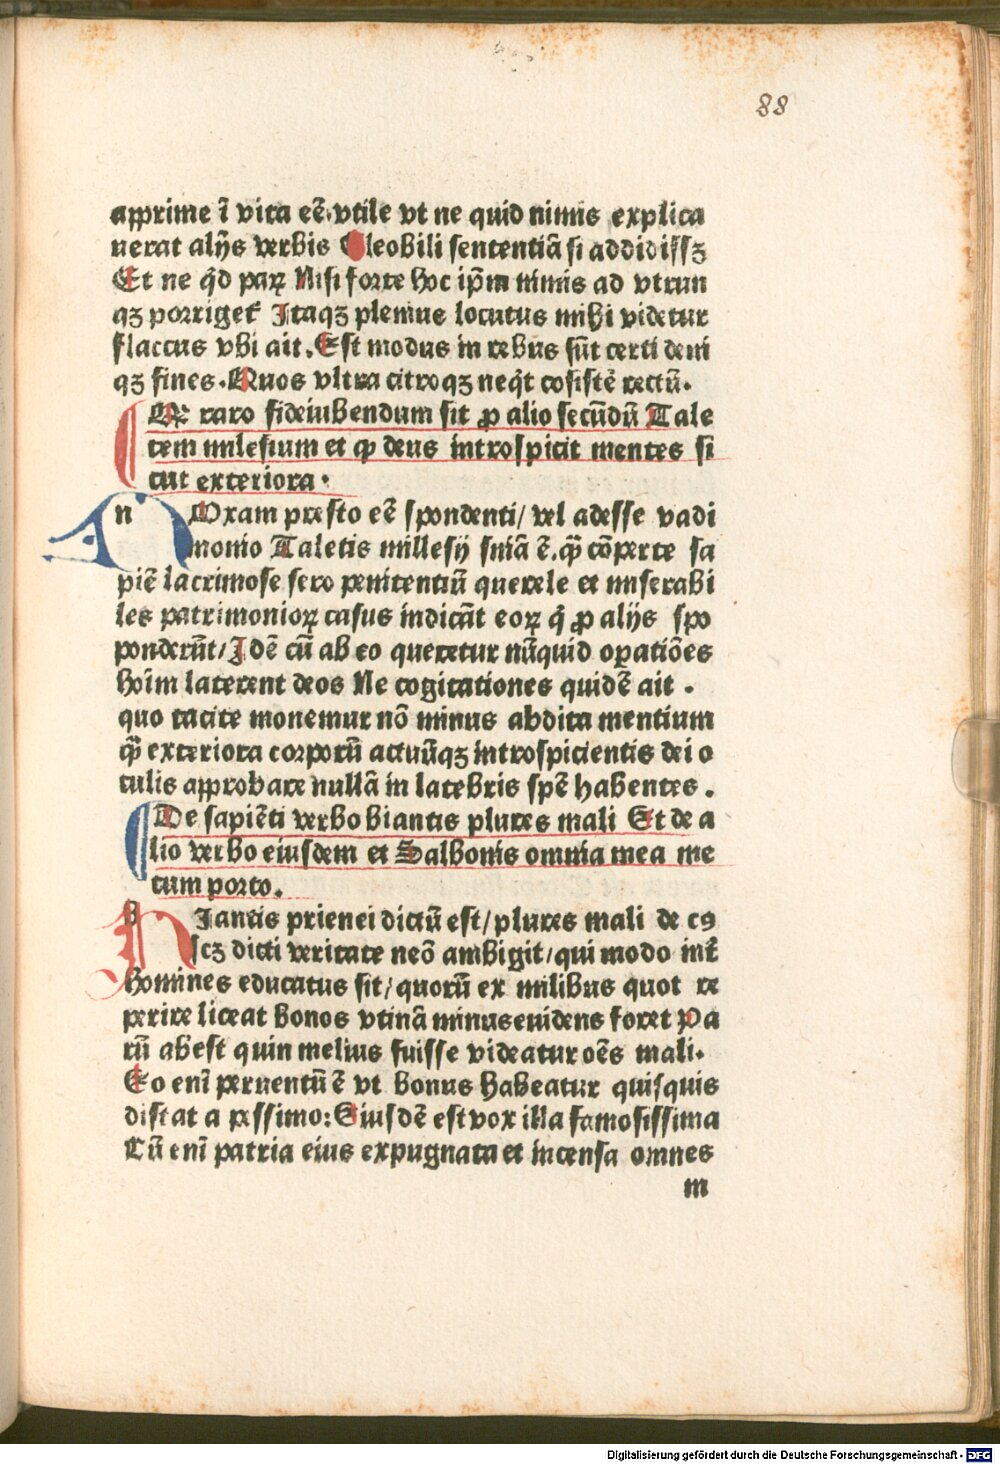 88
apprime ī vita eē vtile vt ne quid nimis explica
uerat alijs verbis Cleobili sententiā si addidissꝫ
Et ne qͥd paꝝ Nisi forte hoc ip̄m nimis ad vtrun
qꝫ porriget᷑ Itaqꝫ plenius locutus mihi videtur
flaccus vbi ait. Est modus in rebus sūt certi deni
qꝫ fines. Quos vltra citroqꝫ neqͥt cōsistē rectū.
raro fideiubendum sit ꝓ alio secūdū Tale
tem milesium et ꝙ deus introspicit mentes si
cut exteriora.
n Oxam presto eē spondenti/ vel adesse vadi
monio Taletis millesij snīa ē. ꝙ̄ cōperte sa
piē lacrimose sero penitentiū querele et miserabi
les patrimonioꝝ casus indicāt eoꝝ qͥ ꝓ alijs spo
ponderūt/ Idē cū ab eo queretur nūquid oꝑatiōes
hoīm laterent deos Ne cogitationes quidē ait .
quo tacite monemur nō minus abdita mentium
ꝙ̄ exteriora corporū actuūqꝫ introspicientis dei o
culis approbare nullā in latebris spē habentes .
De sapiēti verbo biantis plures mali Et de a
lio verbo eiusdem et Salbonis omnia mea me
cum porto.
B Iantis prienei dictū est/ plures mali de cꝯ
scꝫ dicti veritate neō ambigit/ qui modo int̄
homines educatus sit/ quorū ex milibus quot re
perire liceat bonos vtinā minus euidens foret Pa
rū abest quin melius fuisse videatur oēs mali.
Eo enī peruentū ē vt bonus habeatur quisquis
distat a pessimo: Eiusdē est vox illa famosissima
Cū enī patria eius expugnata et incensa omnes
m
Digitalisierung gefördert durch die Deutsche Forschungsgemeinschaft - DFG